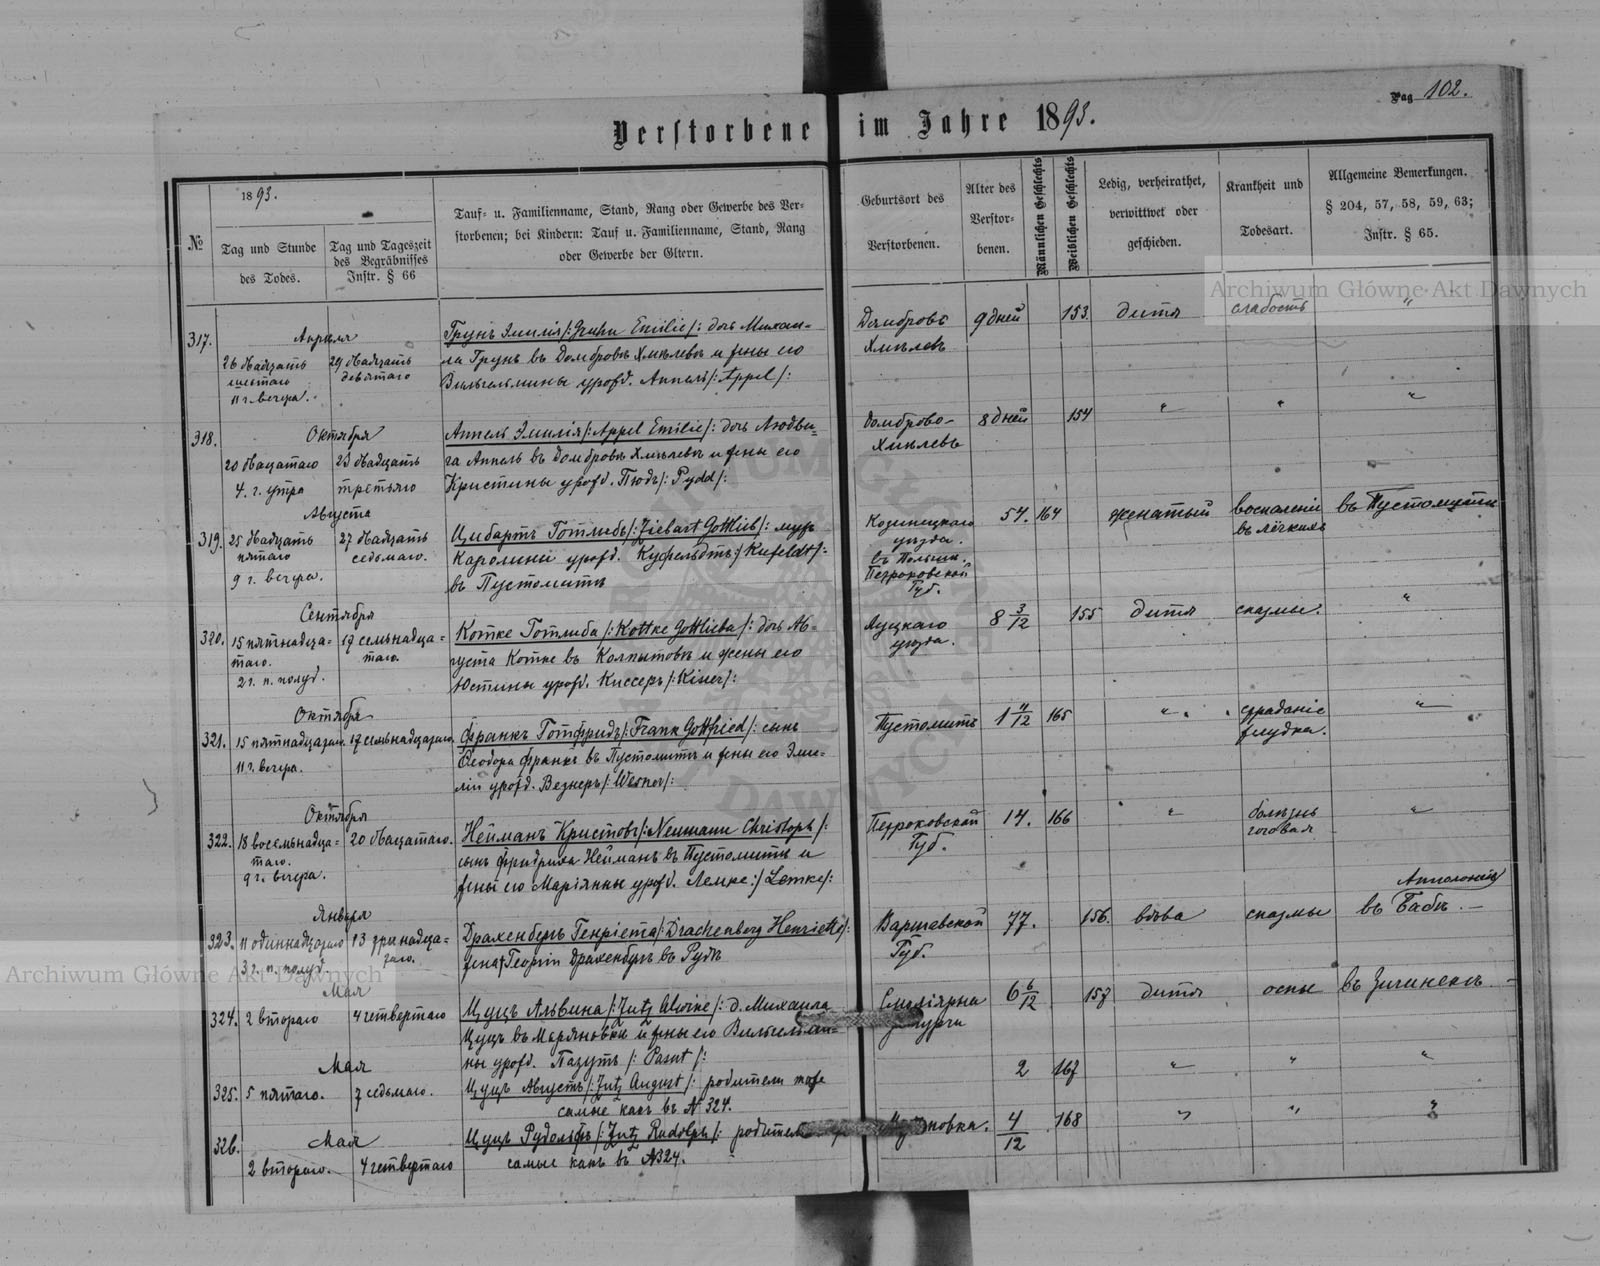 Pag 102.
Verstorbene im Jahre 1893.
№
1893.
Tag und Stunde
des Todes.
Tag und Tageszeit
des Begräbnisses
Instr. § 66
Tauf- u. Familienname, Stand, Rang oder Gewerbe des Ver-
storbenen; bei Kindern: Tauf u. Familienname, Stand, Rang
oder Gewerbe der Eltern.
Geburtsort des
Verstorbenen.
Alter des
Verstor-
benen.
Männlichen Geschlechts
Weiblichen Geschlechts
Ledig, verheirathet,
verwittwet oder
geschieden.
Krankheit und
Todesart.
Allgemeine Bemerkungen.
§ 204, 57, 58, 59, 63;
Instr. § 65.
317.
Апреля
26 двадцать
шестаго
11 г. вечера.
29 двадцать
девятаго
Грунъ Эмилія /: Gruhn Emilie /: дочь Михаи-
ла Грунъ въ Домбровѣ Хмѣлевѣ и жены его
Вильгельмины урожд. Аппель /: Appel /:
Домброво
Хмѣлевъ
9 дней
153.
дитя
слабость
"
318.
Октября
20 двацатаго
4. г. утра
23 двадцать
третьяго
Аппель Эмилія /: Appel Emilie /: дочь Людви-
га Аппель въ Домбровѣ Хмѣлевѣ и жены его
Кристины урожд. Пюдъ /: Pydd /:
Домброво-
Хмѣлевъ
8 дней
154
"
"
"
319.
Августа
25 двадцать
пятаго
9 г. вечера.
27 двадцать
седьмаго.
Цибартъ Готлибъ /: Ziebart Gottlieb /: мужъ
Каролины урожд. Куфельдтъ /: Kufeldt /:
въ Пустомитѣ
уѣзда.
въ Польши.
Петроковской
Губ.
54.
164
женатый
воспаленіе
въ лёгкихъ
въ Пустомитѣ
320.
Сентября
15 пятнадца-
таго.
2 г. п. полуд.
17 семьнадца-
таго.
Котке Готлиба /: Kottke Gottlieba /: дочь Ав-
густа Котке въ Колпытовѣ и жены его
Юстины урожд. Киссеръ /: Kiser /:
Луцкаго
уѣзда.
8 3/12
155
дитя
спазмы.
"
321.
Октября
15 пятнадцатаго.
11 г. вечера.
17 семьнадцатаго.
Франкъ Готфридъ /: Frank Gottfried /: сынъ
Ѳеодора Франкъ въ Пустомитѣ и жены его Эми-
ліи урожд. Вернеръ /: Werner /:
Пустомитъ
1 11/12
165
"
страданіе
желудка.
"
322.
Октября
18 восемьнадца-
таго.
9 г. вечера.
20 двацатаго.
Нейманъ Христофъ /: Neumann Christoph /:
сынъ Фридриха Нейманъ въ Пустомитѣ и
жены его Маріянны урожд. Лемке :/ Lemke /:
Петроковской
Губ.
14.
166
"
болѣзнь
"
323.
Января
11 одиннадцатаго
3 г. п. полуд.
13 тринадца-
таго.
Драхенбергъ Генріета /: Drachenberg Henriette /:
жена † Георгія Драхенбергъ въ Рудѣ
Варшавской
Губ.
77.
156.
вдова
спазмы
въ Бабѣ. –
324.
Мая
2 втораго
4 четвертаго
Цуцъ Альвина /: Zutz Alwine /: д. Михаила
Цуцъ въ Маряновки и жены его Вильгельми-
ны урожд. Пазутъ /: Pasut /:
6 6/12
157
дитя
оспы
325.
Мая
5 пятаго.
7 седьмаго.
Цуцъ Августъ /: Zutz August /: родители тоже
самые какъ въ № 324.
2
167
"
"
"
326.
Мая
2 втораго.
4 четвертаго
Цуцъ Рудольфъ /: Zutz Rudolph /: родители
самые какъ въ № 324.
4/12
168
"
"
"
Archiwum Główne Akt Dawnych
Archiwum Główne Akt Dawnych